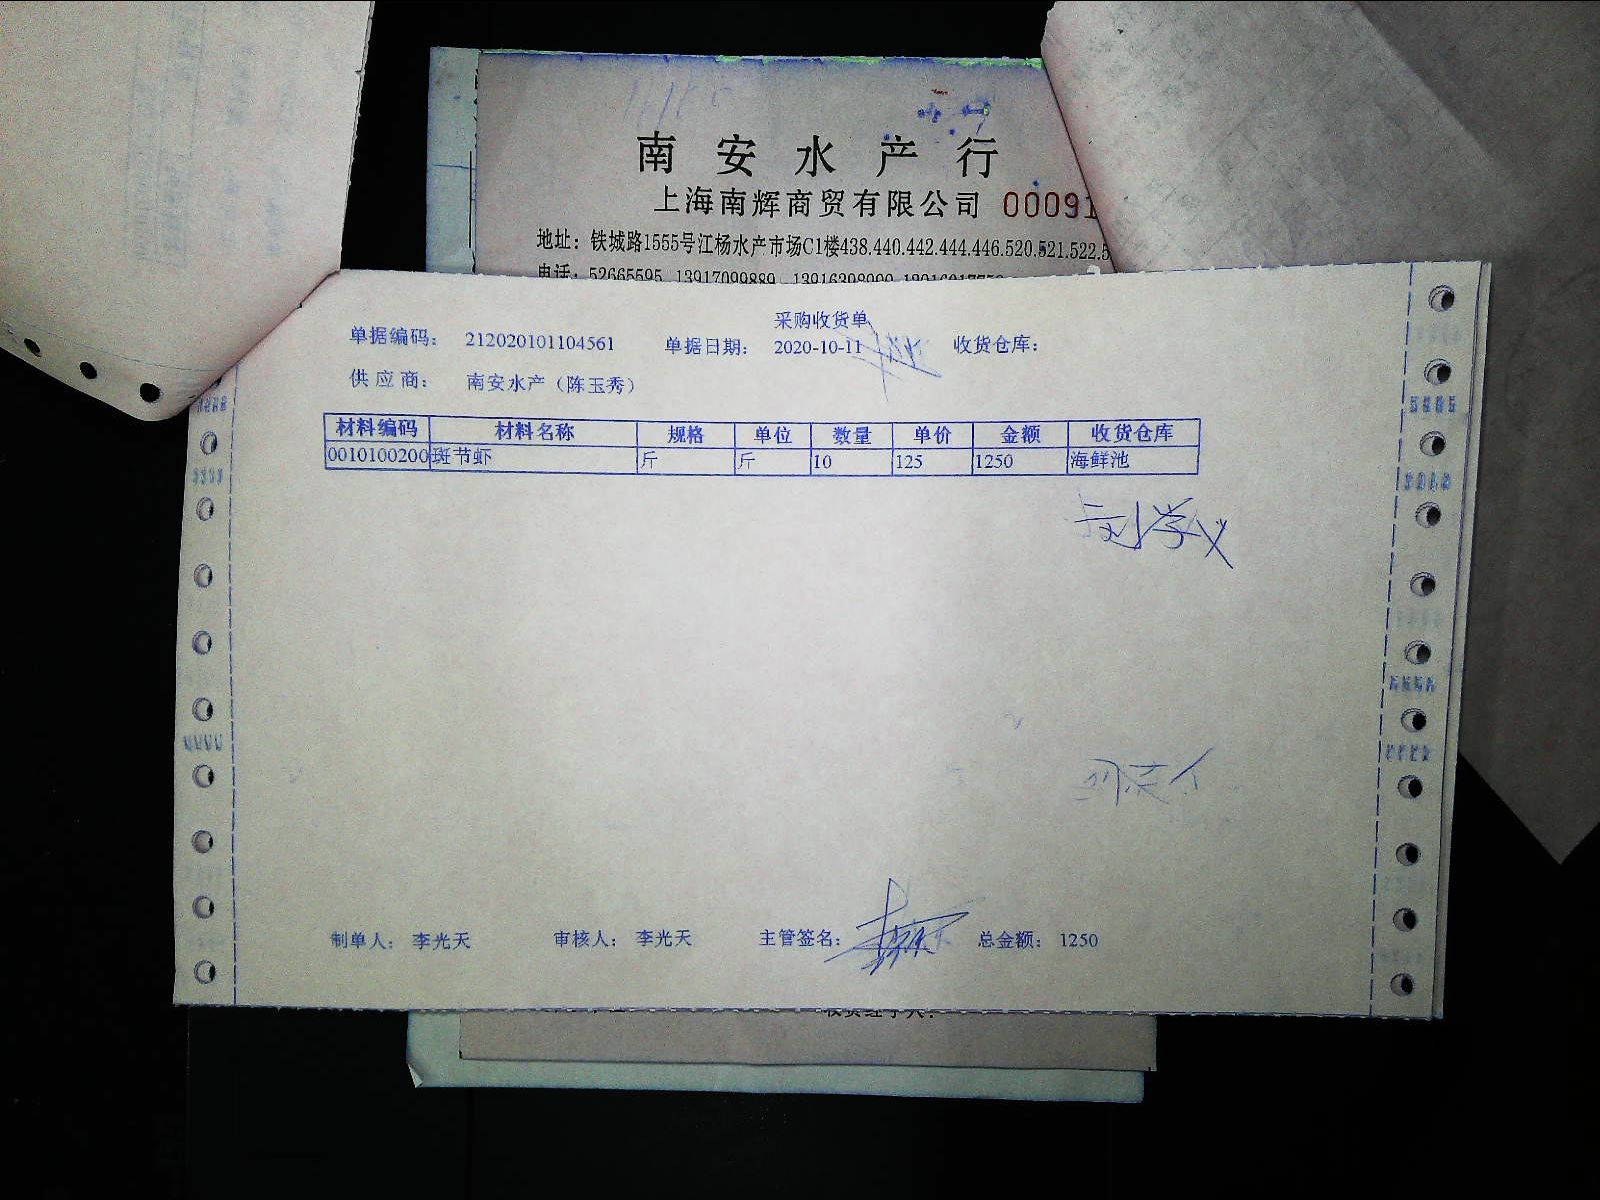 南安水产行
上海南辉商贸有限公司 00091
地址：铁城路1555号江杨水产市场C1楼438.440.442.444.446.520.521.522.5
电话：52665595 13917099889
采购收货单
单据编码： 212020101104561 单据日期： 2020-10-11 收货仓库：
供应商： 南安水产（陈玉秀）
材料编码 材料名称 规格 单位 数量 单价 金额 收货仓库
0010100200 斑节虾 斤 斤 10 125 1250 海鲜池
制单人： 李光天 审核人： 李光天 主管签名： 总金额： 1250